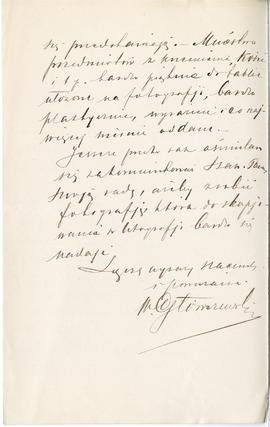 się przedstawiają. – Mnóstwo
przedmiotów z krzemienia, kości
i t p. bardzo pięknie do tablic
ułożone na fotografji, bardzo
plastycznie, wyraźnie i co naj-
więcej wiernie oddane. –
Jeszcze przeto raz ośmielam
się zakomunikować Szan. Panu
swoją radę, ażeby zrobić
fotografję która do skopjo-
wania w litografji bardzo się
nadaje.
Łączę wyrazy szacunku
i poważania